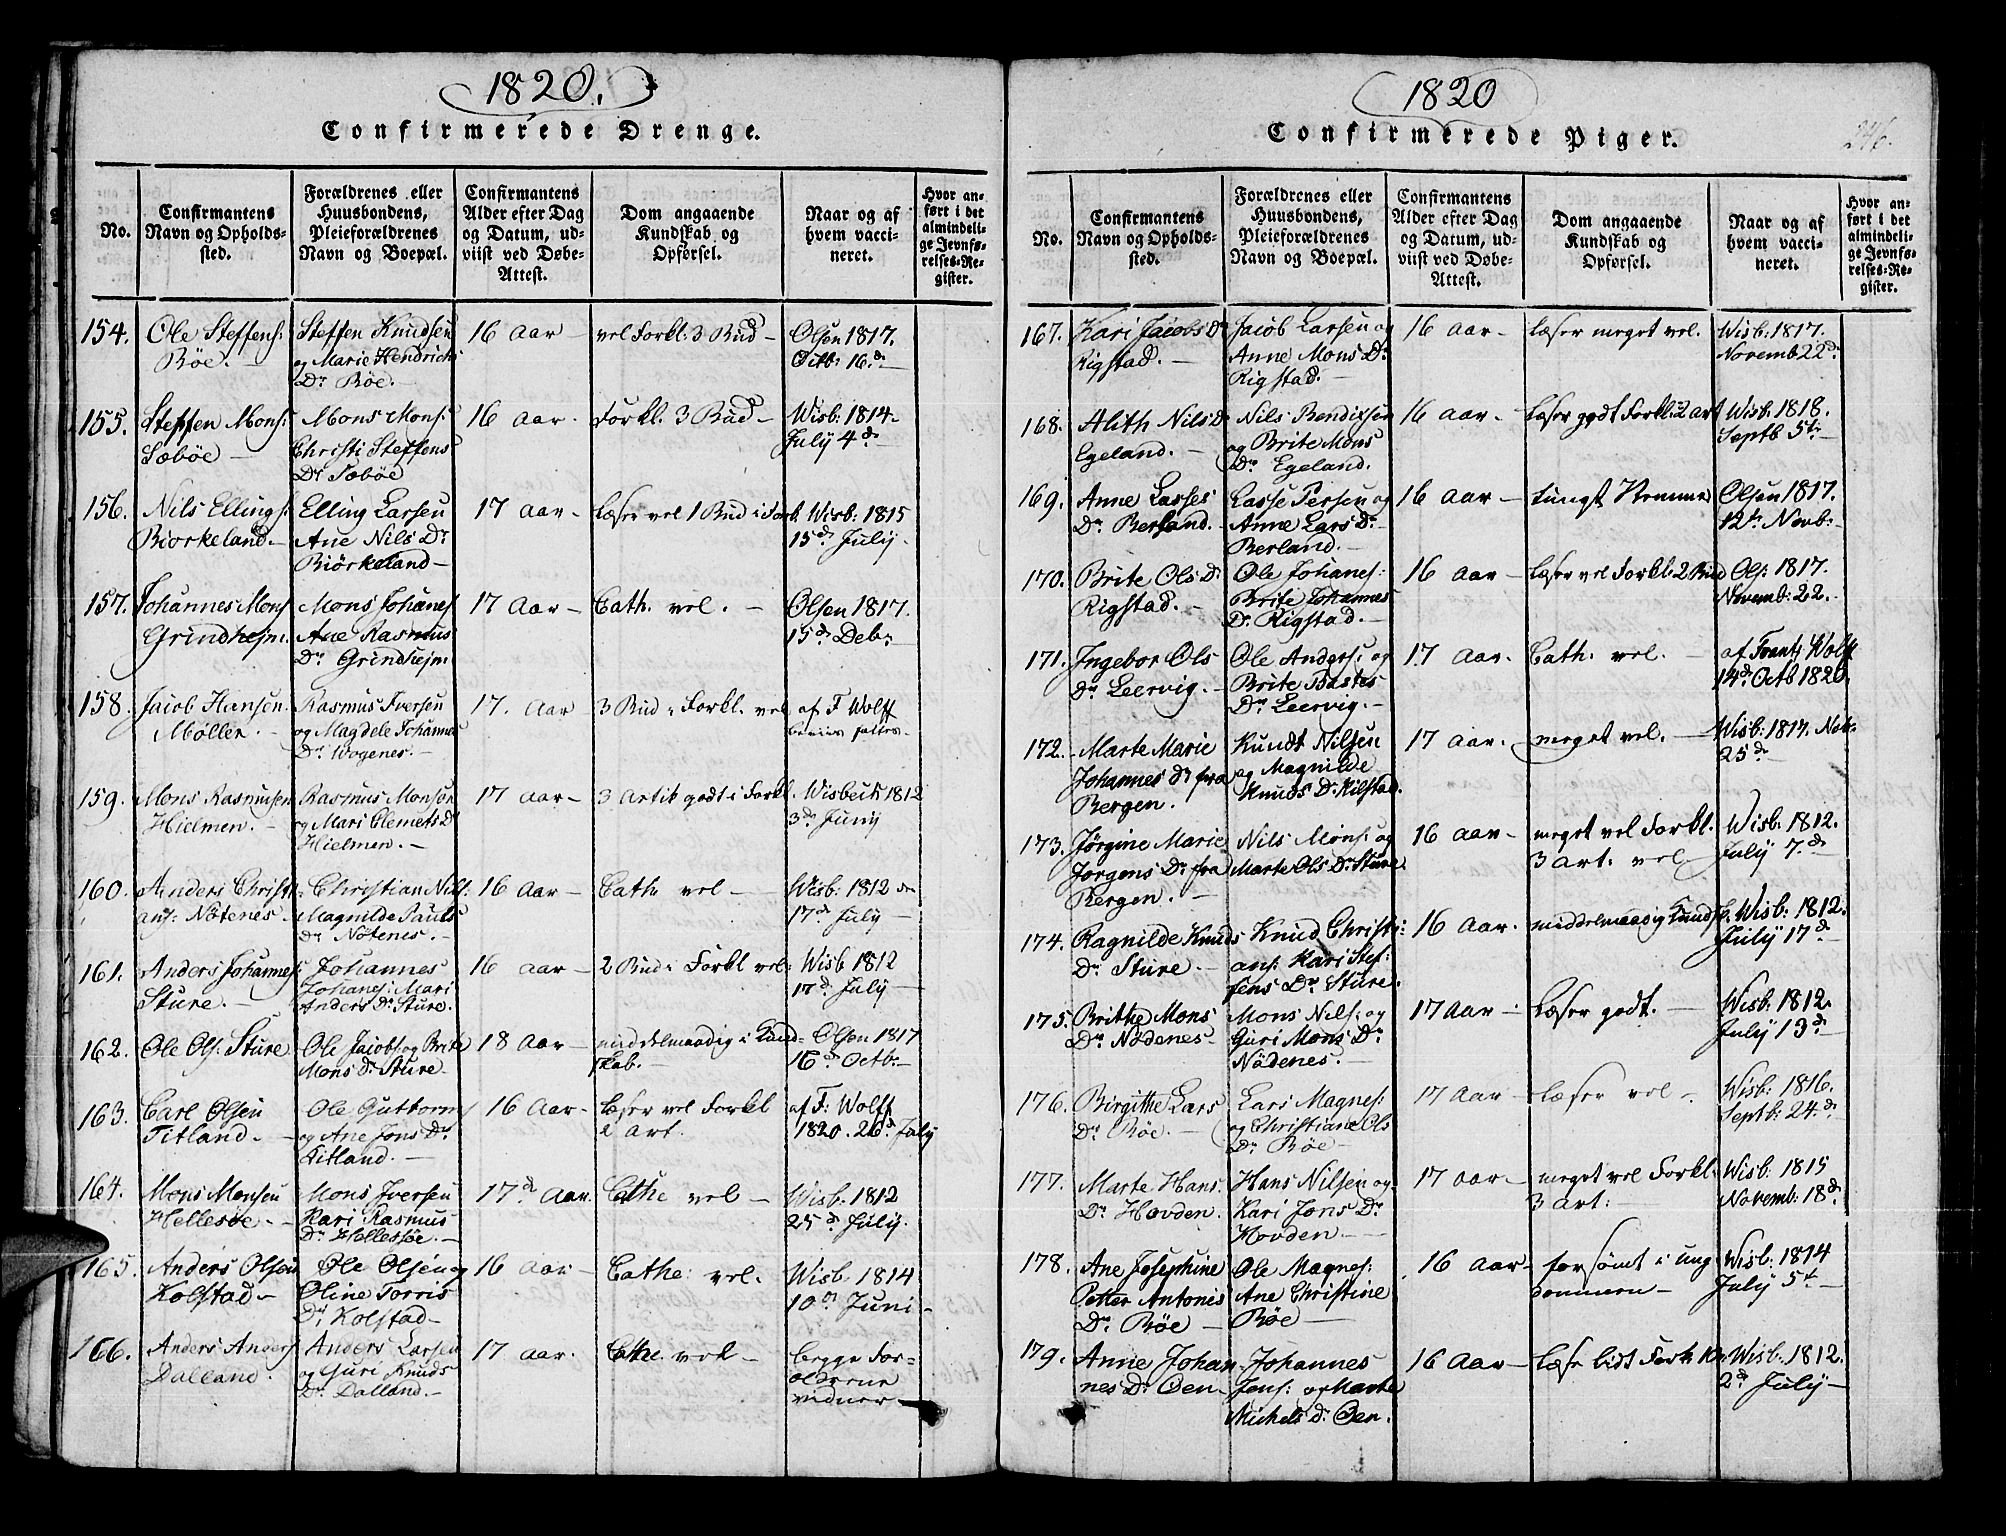 1820.
Confirmerede Drenge.
No.
Confirmantens
Navn og Opholds-
sted.
Forældrenes eller
Huusbondens,
Pleieforældrenes
Navn og Boepæl.
Confirmantens
Alder efter Dag
og Datum, ud-
viist ved Døbe-
Attest.
Dom angaaende
Kundskab og
Opførsel.
Naar og af
hvem vacci-
neret.
Hvor an-
ført i det
almindeli-
ge Jevnfø-
relses-Re-
gister.
154. Ole Steffens: Steffen Knudsen 16 Aar vel Forkl: 3 Bud – Olsen 1817.
Böe. – og Marie Hendrichs Octb: 16.d –
Dr Böe. –
155. Steffen Mons: Mons Mons: 16 Aar. Forkl. 3 Bud – Wisb: 1814.
Sæböe – Christi Steffens July 4 d
Dr Sæböe
156. Nils Ellings: Elling Larsen 17 Aar – læser vel 1 Bud i Fork. Wisb: 1815
Biorkeland – Ane Nils Dr 15 d July –
Biörkeland –
157. Johannes Mons: Mons Johanes 17 Aar – Cath: vel. – Olsen 1817.
Grindhejm. Ane Rasmus 15 d Debr
Dr Grindhejm
158. Jacob Hansen Rasmus Iversen 17. Aar 3 Bud i Forkl. vel af F Wolff
Möller. – og Magdele Johannes
Dr Wogenes. –
159. Mons Rasmusen Rasmus Monsen 17 Aar – 3 Artik godt i Forkl. Wisbech 1812
Hielmen. – og Mari Clemets Dr 3 d Junij
Hielmen. –
160. Anders Christi- Christian Nils: 16 Aar – Cath vel – Wisb: 1812
ans: Nötenes. Magnilde Pauls 17 d July –
Dr Nötenes. –
161. Anders Johannes: Johannes 16 Aar – 2 Bud i Forkl vel: Wisb 1812
Sture. – Johanes: Mari 17 d July –
Anders Dr Sture.
162. Ole Ols: Sture Ole Jacobs og Brite 18 Aar – middelmaadig i Kund- Olsen 1817
Mons Dr Sture – skab. – 16 d Octb: –
163. Carl Olsen Ole Guttorms 16 Aar – læser vel Forkl af F: Wolff
Titland. – og Ane Jons Dr 2 art. 1820. 26 d July
Titland. –
164. Mons Monsen Mons Iversen 17 d Aar. Cathe vel – Wisb: 1812
Hellesöe. – Kari Rasmus 25 d July.
Dr Hellesöe. –
165. Anders Olsen Ole Olsen og 16 Aar – Cathe: vel. Wisb. 1814
Kolstad – Oline Torris 10 d Juni –
Dr Kolstad –
166. Anders Anders: Anders Larsen 17 Aar. Cathe vel – begge For-
Dalland. og Guri Knuds ældrene
Dr Dalland. – vidner –
1820
Confirmerede Piger.
246.
No.
Confirmantens
Navn og Opholds-
sted.
Forældrenes eller
Huusbondens,
Pleieforældrenes
Navn og Boepæl.
Confirmantens
Alder efter Dag
og Datum, ud-
viist ved Døbe-
Attest.
Dom angaaende
Kundskab og
Opførsel.
Naar og af
hvem vacci-
neret.
Hvor an-
ført i det
almindeli-
ge Jevnfø-
relses-Re-
gister.
167. Kari Jacobs Dr Jacob Larsen og 16 Aar – læser meget vel. Wisb. 1817.
Rigstad. – Anne Mons Dr Novemb 22 d
Rigstad. –
168. Alith Nils Dr Nils Bendixsen 16 Aar – læser godt Forkl: 2 art Wisb: 1818.
Egeland. – og Brite Mons Septb 5te –
Dr Egeland.
169. Anne Lasses Lasse Persen og 16 Aar – Olsen 1817.
Dr Berland. – Anne Lars Dr 12te Novb:
Berland. –
170. Brite Ols Dr Ole Johanes: 16 Aar – læser vel Forkl: 2 Bud Ols: 1817.
Rigstad. – Brite Johannes Novemb: 22. –
Dr Rigstad. –
171. Ingebor Ols Ole Anders: og 17 Aar. Cath: vel. – af Frantz Wolff
Dr Leervig. – Brite Baстes 14 d Octb 1820.
Dr Leervig. –
172. Marte Marie Kundt Nilsen 17 Aar. meget vel. – Wisb: 1817. Nob:
Johannes Dr fra og Magnilde 25 d
Bergen. Knuds Dr Kilstad.
173. Jörgine Marie Nils Mons: og 16 Aar – meget vel Forkl. Wisb: 1812.
Jörgens Dr fra Marte Ols Dr Sture. 3 art: vel July 7. d
Bergen. –
174. Ragnilde Knuds Knud Christi- 16 Aar – middelmaadig Kundsk. Wisb: 1812.
Dr Sture. – ans: Kari Stef- July 17 d
fens Dr Sture.
175. Brithe Mons Mons Nils: og 17 Aar – Læser godt. – Wisb: 1812.
Dr Nödenes – Guri Mons Dr July 13 d
Nödenes. –
176. Birgithe Lars Lars Magnes: 17 Aar – læser vel – Wisb: 1816.
Dr Böe. – og Christiane Ols Septb: 24. d
Dr Böe –
177. Marte Hans Hans Nilsen og 17 Aar – meget vel Forkl: Wisb: 1815
Dr Hovden. Kari Jons Dr 3 art: Novemb: 18 d
Hovden –
178. Ane Josephine Ole Magnes: 16 Aar – forsömt i ung Wisb: 1814
Petter Antonis Ane Christine dommen – July 5te –
Dr Böe – Böe –
179. Anne Johan- Johannes 16 Aar – Læse lidt Wisb: 1812.
nes Dr Öen – Jons: og Marte 2 d July –
Michels Dr Öen.